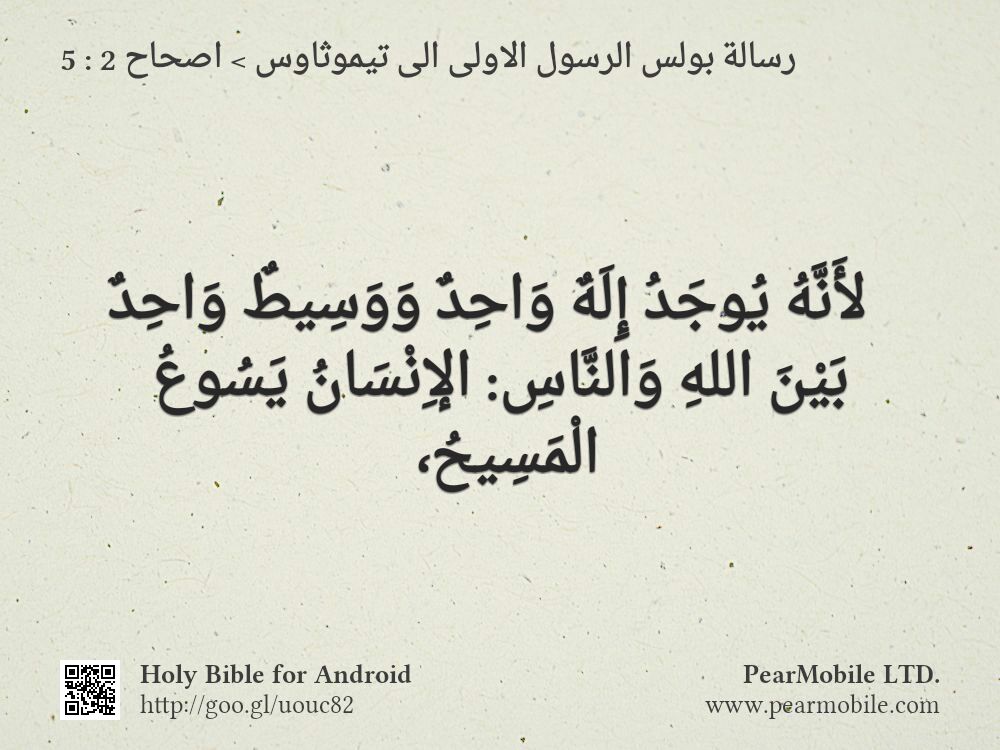 رسالة بولس الرسول الاولى الى تيموثاوس > اصحاح 2 : 5
لأَنَّهُ يُوجَدُ إِلَهٌ وَاحِدٌ وَوَسِيطٌ وَاحِدٌ
بَيْنَ اللهِ وَالنَّاسِ: الإِنْسَانُ يَسُوعُ
الْمَسِيحُ،
Holy Bible for Android
http://goo.gl/uouc82
PearMobile LTD.
www.pearmobile.com